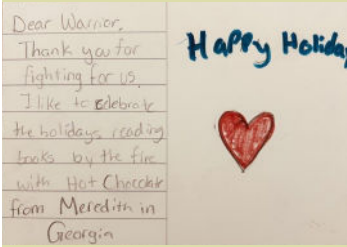 Dear Warrior,
Thank you for
fighting for us.
I like to celebrate
the holidays reading
books by the fire
with Hot Chocolate
from Meredith in
Georgia
Happy Holiday